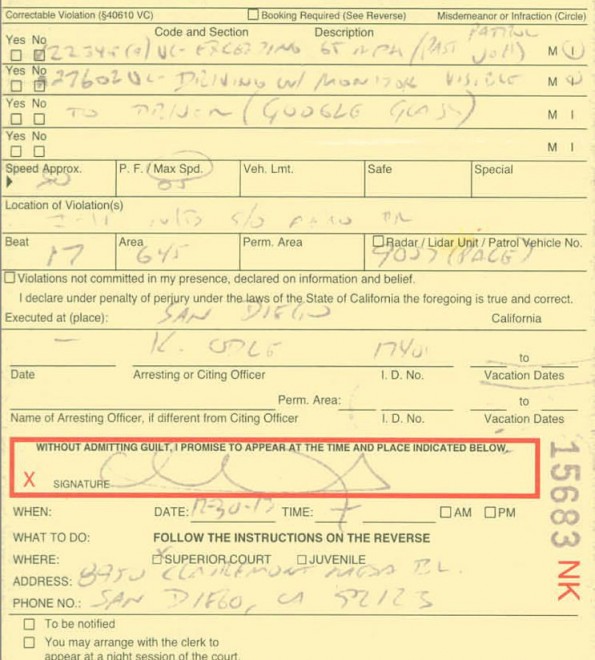 Correctable Violation (§40610 VC) Booking Required (See Reverse) Misdemeanor or Infraction (Circle)
Code and Section Description PATROL
Yes No 22349(a) VC- EXCEEDING 65 MPH (PAST M I
Yes No 27602 VC- DRIVING W/ MONITOR VISIBLE M I
Yes No TO DRIVER (GOOGLE GLASS) M I
Yes No M I
Speed Approx. P. F. / Max Spd. Veh. Lmt. Safe Special
65
Location of Violation(s)
S/O AERO DR
Beat Area Perm. Area Radar / Lidar Unit / Patrol Vehicle No.
17 645 (PACE)
Violations not committed in my presence, declared on information and belief.
I declare under penalty of perjury under the laws of the State of California the foregoing is true and correct.
Executed at (place): SAN DIEGO California
K. to
Date Arresting or Citing Officer I. D. No. Vacation Dates
Perm. Area: to
Name of Arresting Officer, if different from Citing Officer I. D. No. Vacation Dates
WITHOUT ADMITTING GUILT, I PROMISE TO APPEAR AT THE TIME AND PLACE INDICATED BELOW.
X SIGNATURE
WHEN: DATE: TIME: AM PM
WHAT TO DO: FOLLOW THE INSTRUCTIONS ON THE REVERSE
WHERE: SUPERIOR COURT JUVENILE
ADDRESS: 8950 CLAIREMONT MESA BL.
PHONE NO.: SAN DIEGO, CA 92123
To be notified
You may arrange with the clerk to
appear at a night session of the court.
15683 NK